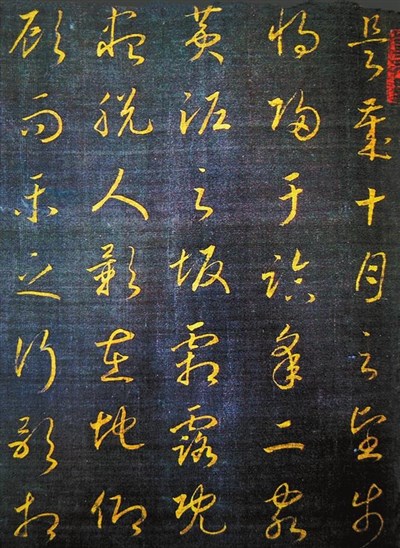 是歲十月之望步
將歸于臨皋二客
黃泥之坂霜露既
盡脫人影在地仰
顧而樂之行歌相